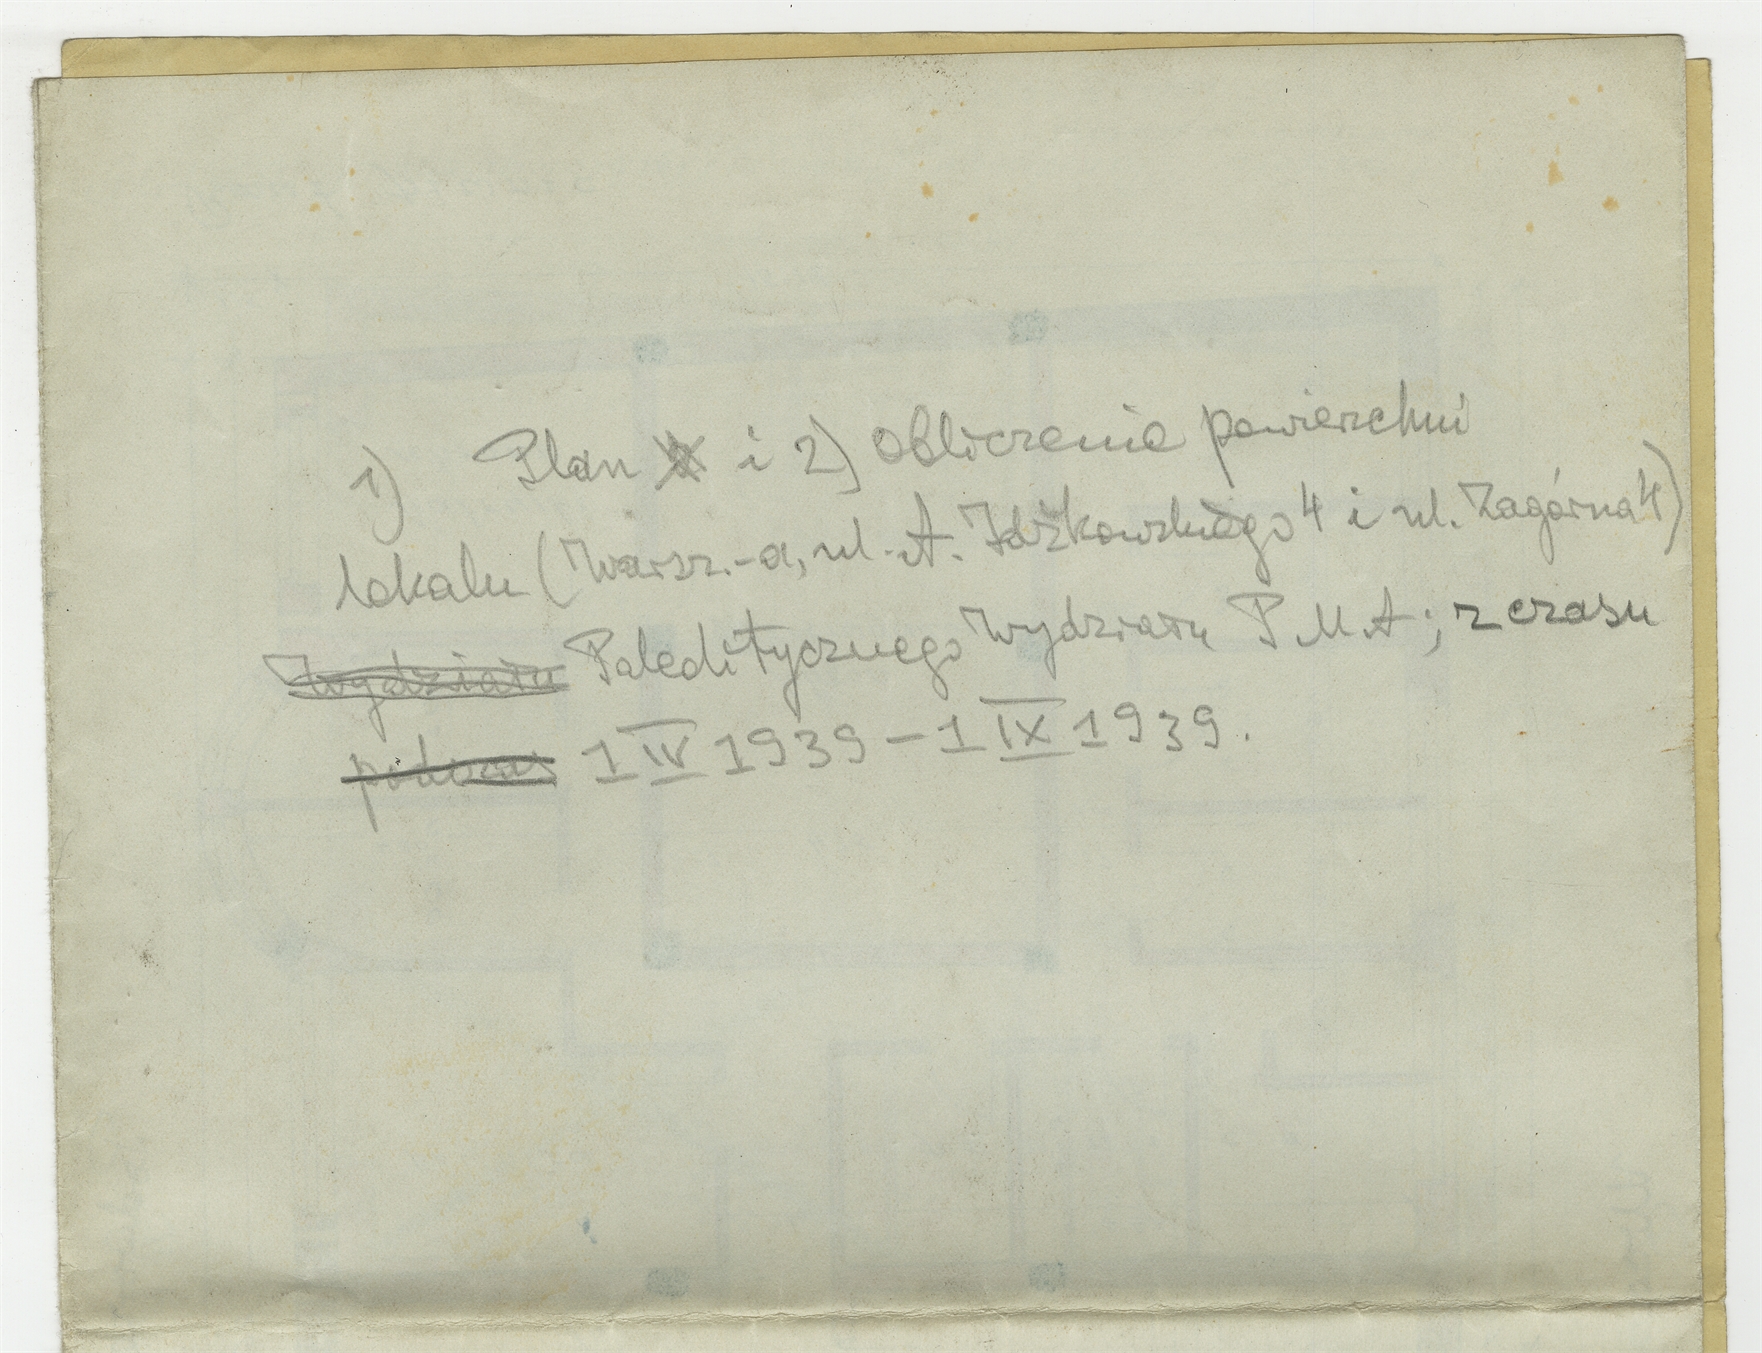 1) Plan i 2) obliczenie powierzchni
lokalu (Warsz.-a, ul. A. Idźkowskiego 4 i ul. Zagórna 4)
Wydziału Paleolitycznego Wydziału P.M.A; z czasu
podczas 1 IV 1939 – 1 IX 1939.